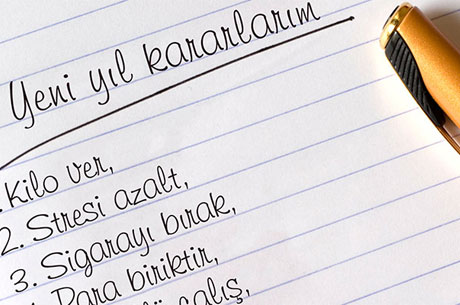 Yeni yıl kararlarım
. Kilo ver,
2. Stresi azalt,
3. Sigarayı bırak,
Para biriktir,
çalış,